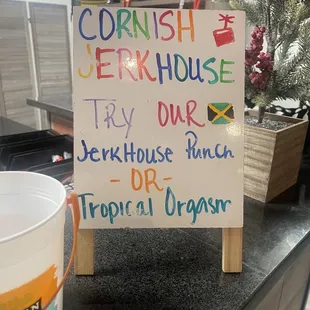 CORNISH
JERKHOUSE
TRY OUR
JerkHouse Punch
- OR -
Tropical Orgasm